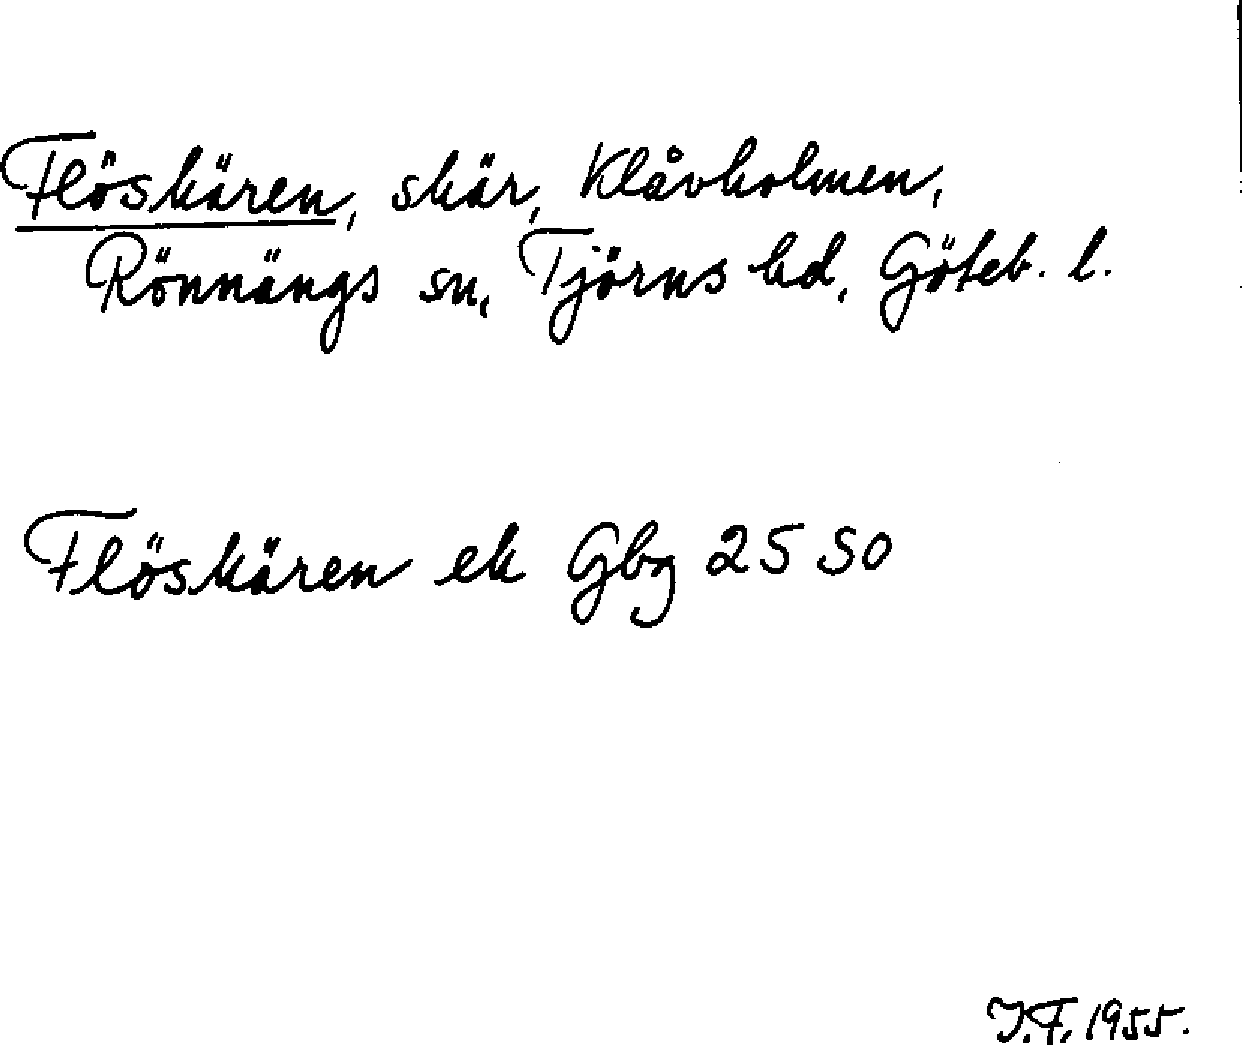 Flöskären, skär, Klåvholmen,
Rönnängs sn, Tjörns hd, Göteb. l.
Flöskären ek Gbg 25 SO
J.F. 1955.